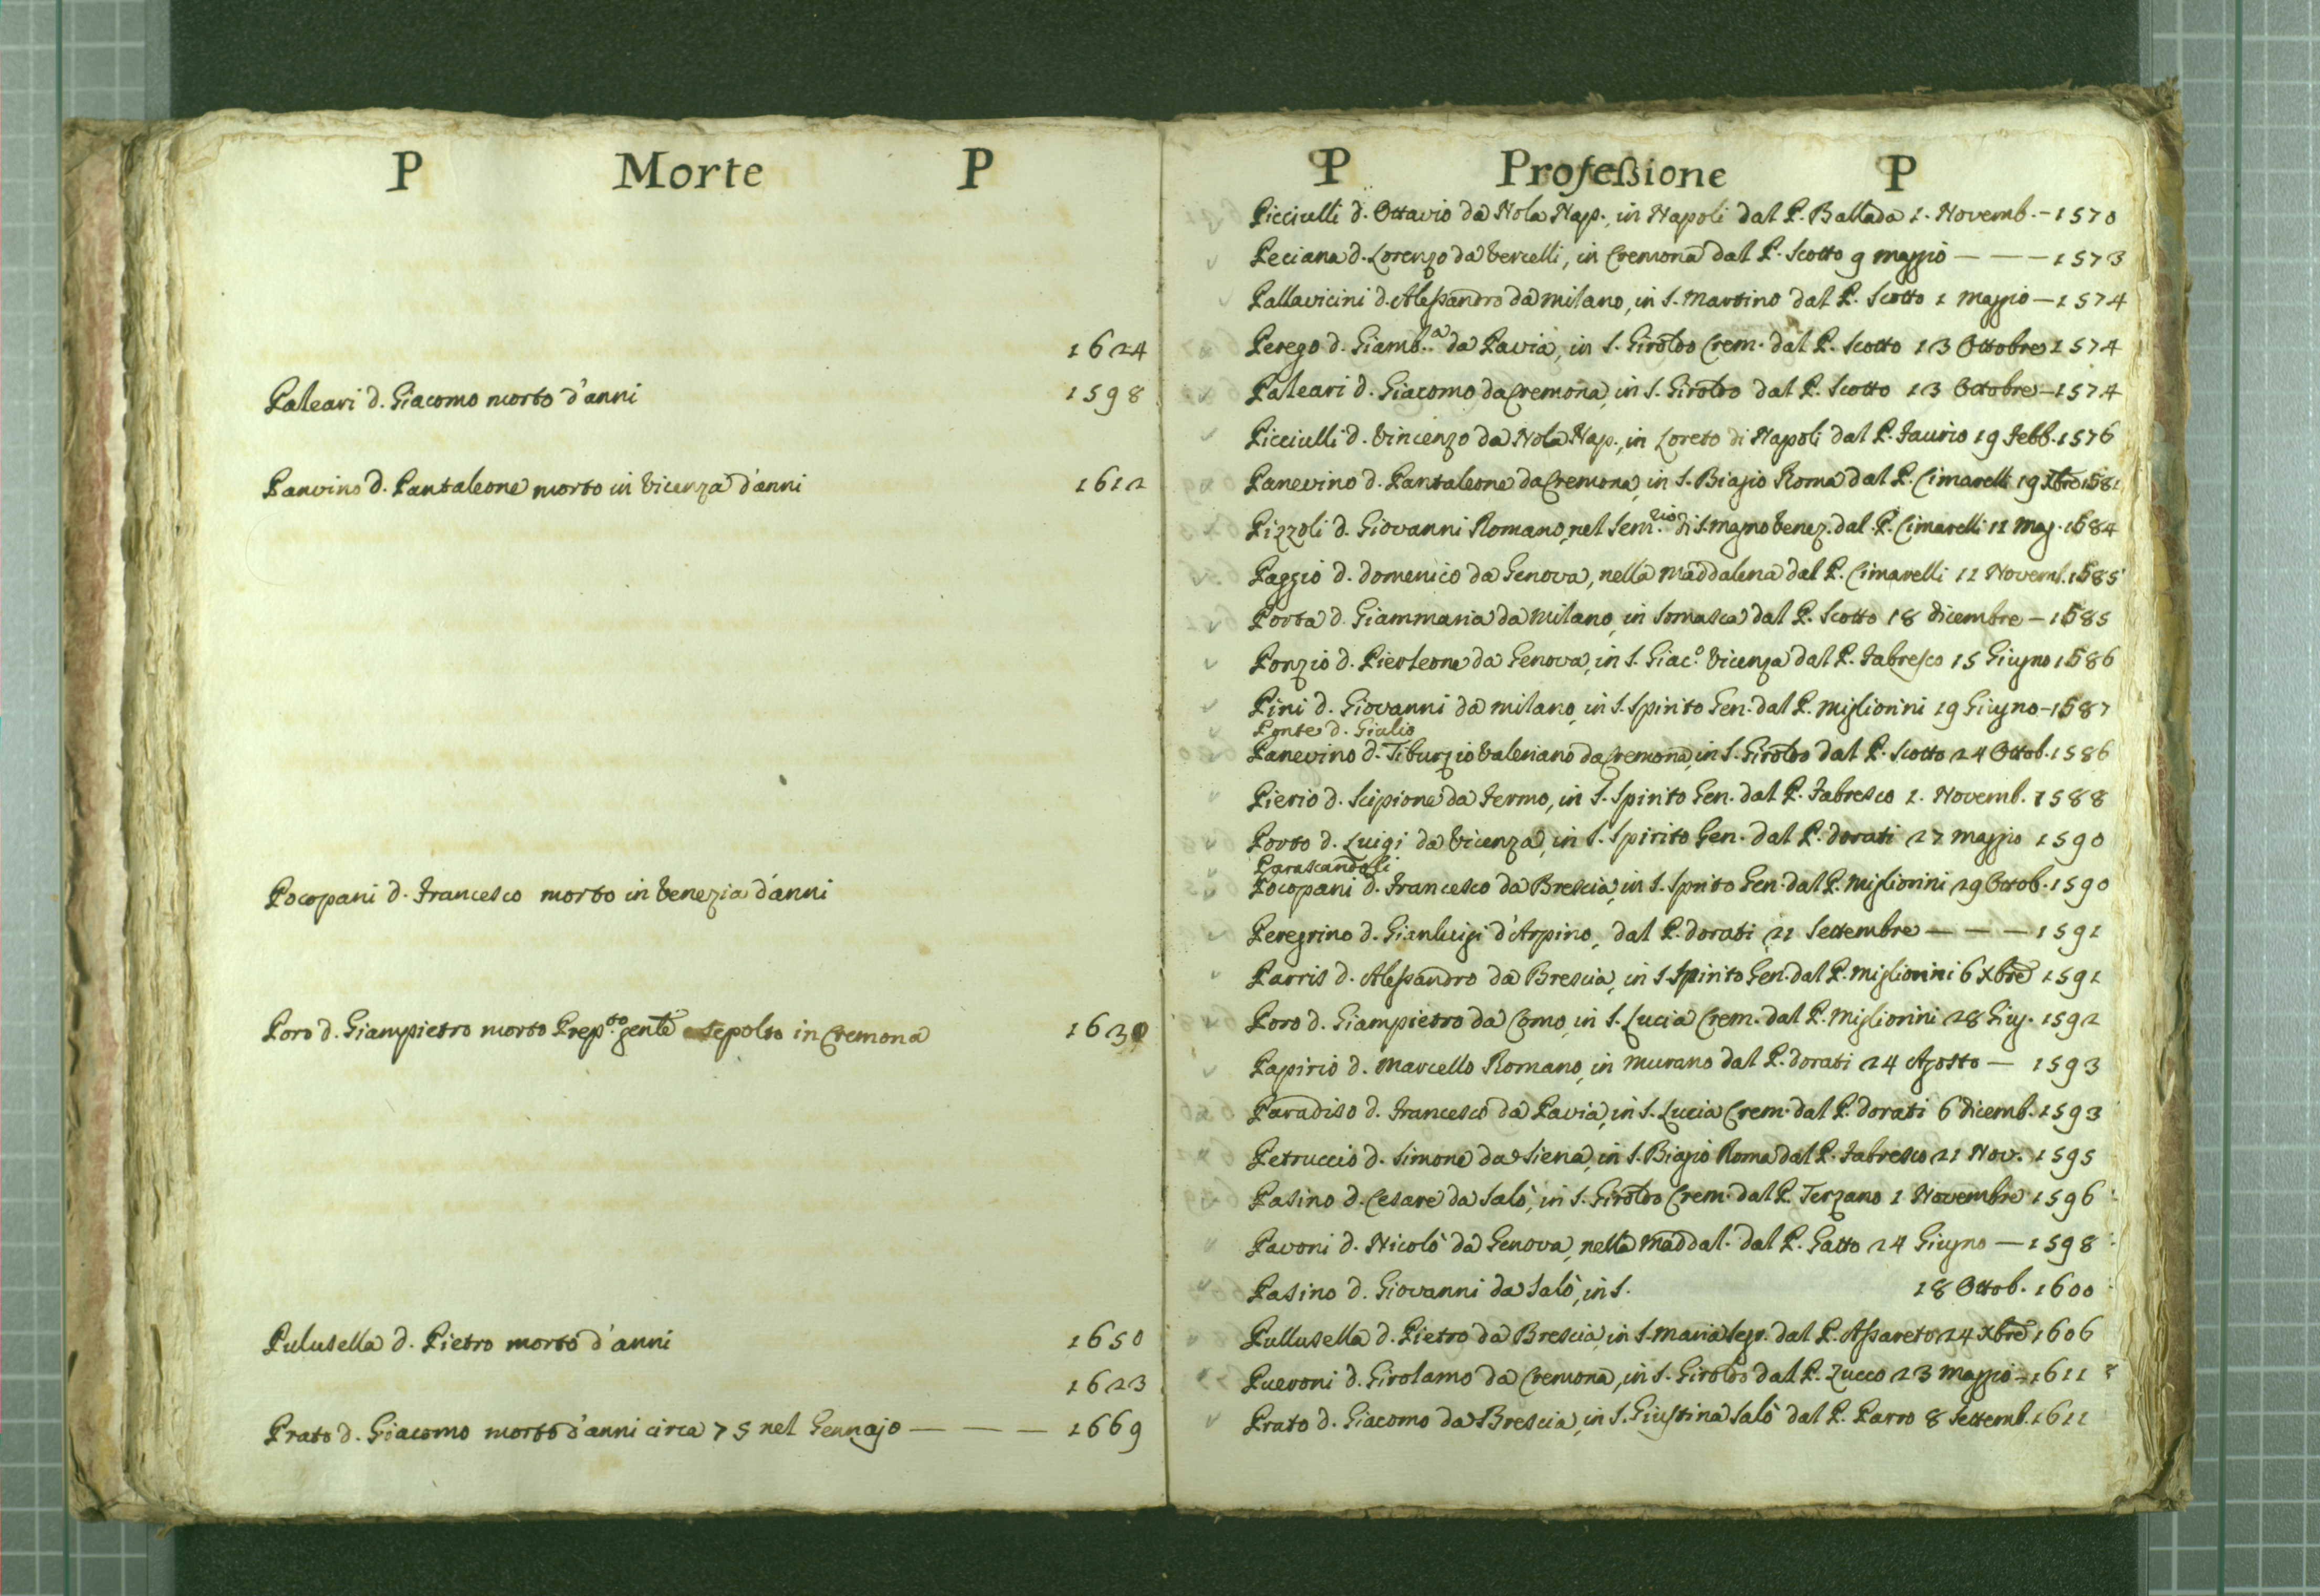 P Morte P
1624
Paleari d. Giacomo morto d'anni 1598
Panvino d. Pantaleone morto in Vicenza d'anni 1612
Pocopani d. Francesco morto in Venezia d'anni
Poro d. Giampietro morto Prep.to gen.le sepolto in Cremona 1630
Pulusella d. Pietro morto d'anni 1650
1623
Prato d. Giacomo morto d'anni circa 75 nel Gennajo — — — 1669
P Professione P
Picciulli d. Ottavio da Nola Nap., in Napoli dal P. Ballada 1. Novemb. - 1570
Peciana d. Lorenzo da Vercelli, in Cremona dal P. Scotto 9 maggio — — — 1573
Pallavicini d. Alessandro da milano, in S. Martino dal P. Scotto 1 Maggio — 1574
Perego d. Giamb.a da Pavia, in S. Giroldo Crem. dal P. Scotto 13 Ottobre 1574
Paleari d. Giacomo da Cremona, in S. Giroldo dal P. Scotto 13 Octobre — 1574
Picciulli d. Vincenzo da Nola Nap., in Loreto di Napoli dal P. Faurio 19 Febb. 1576
Panevino d. Pantaleone da Cremona, in S. Biagio Roma dal P. Cimarelli 19 Xbre 1581
Pizzoli d. Giovanni Romano, nel Sem.rio di S. magno Venez. dal P. Cimarelli 12 Mag. 1584
Paggio d. domenico da Genova, nella Maddalena dal P. Cimarelli 11 Novemb. 1585
Porta d. Giammaria da Milano, in Somasca dal P. Scotto 18 dicembre — 1585
Ponzio d. Pierleone da Genova, in S. Giac.o Vicenza dal P. Fabresco 15 Giugno 1586
Pini d. Giovanni da milano, in S. Spirito Gen. dal P. Migliorini 19 Giugno - 1587
Ponte d. Giulio
Panevino d. Tiburzio Valeriano da Cremona, in S. Giroldo dal P. Scotto 24 Ottob. 1586
Pierio d. Scipione da Fermo, in S. Spirito Gen. dal P. Fabresco 1. Novemb. 1588
Porto d. Luigi da Vicenza, in S. Spirito Gen. dal P. dorati 27 Maggio 1590
Parascandolli
Pocopani d. Francesco da Brescia, in S. Sprito Gen. dal P. Migliorini 29 Octob. 1590
Peregrino d. Gianluigi d'Arpino, dal P. dorati 21 Settembre — — — 1591
Parris d. Alessandro da Brescia, in S. Spirito Gen. dal P. Migliorini 6 Xbre 1591
Poro d. Giampietro da Como, in S. Lucia Crem. dal P. Migliorini 28 Giug. 1592
Papirio d. Marcello Romano, in Murano dal P. dorati 24 Agosto — 1593
Paradiso d. Francesco da Pavia, in S. Lucia Crem. dal P. dorati 6 dicemb. 1593
Petruccio d. Simone da Siena, in S. Biagio Roma dal P. Fabresco 21 Nov. 1595
Pasino d. Cesare da Salò, in S. Giroldo Crem. dal P. Terzano 1 Novembre 1596
Pavoni d. Nicolò da Genova, nella Maddal. dal P. Gatto 24 Giugno — 1598
Pasino d. Giovanni da Salò, in S. 18 Ottob. 1600
Pullusella d. Pietro da Brescia, in S. Maria Segr. dal P. Assareto 24 Xbre 1606
Pueroni d. Girolamo da Cremona, in S. Giroldo dal P. Zucco 23 Maggio - 1611
Prato d. Giacomo da Brescia, in S. Giustina Salò dal P. Parro 8 Settemb. 1611